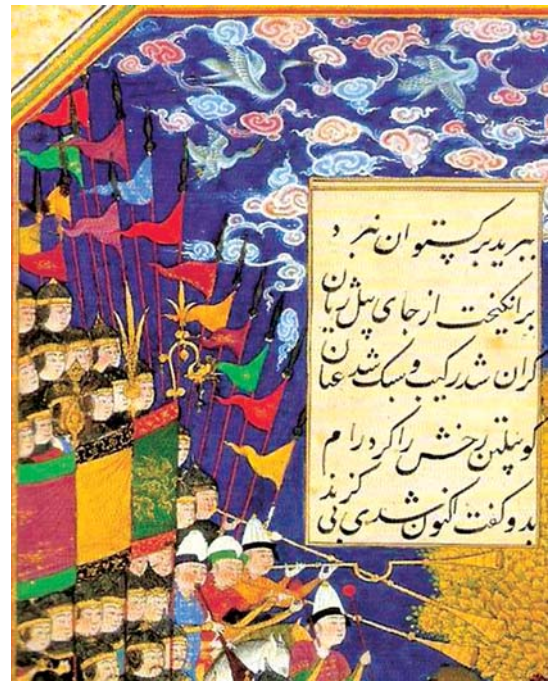 ببرید برگستوان نبرد
برانگیخت از جای پیل ژیان
گران شد رکیب و سبک شد عنان
گو پیلتن رخش را کرد رام
بدو گفت اکنون شدی بی گزند